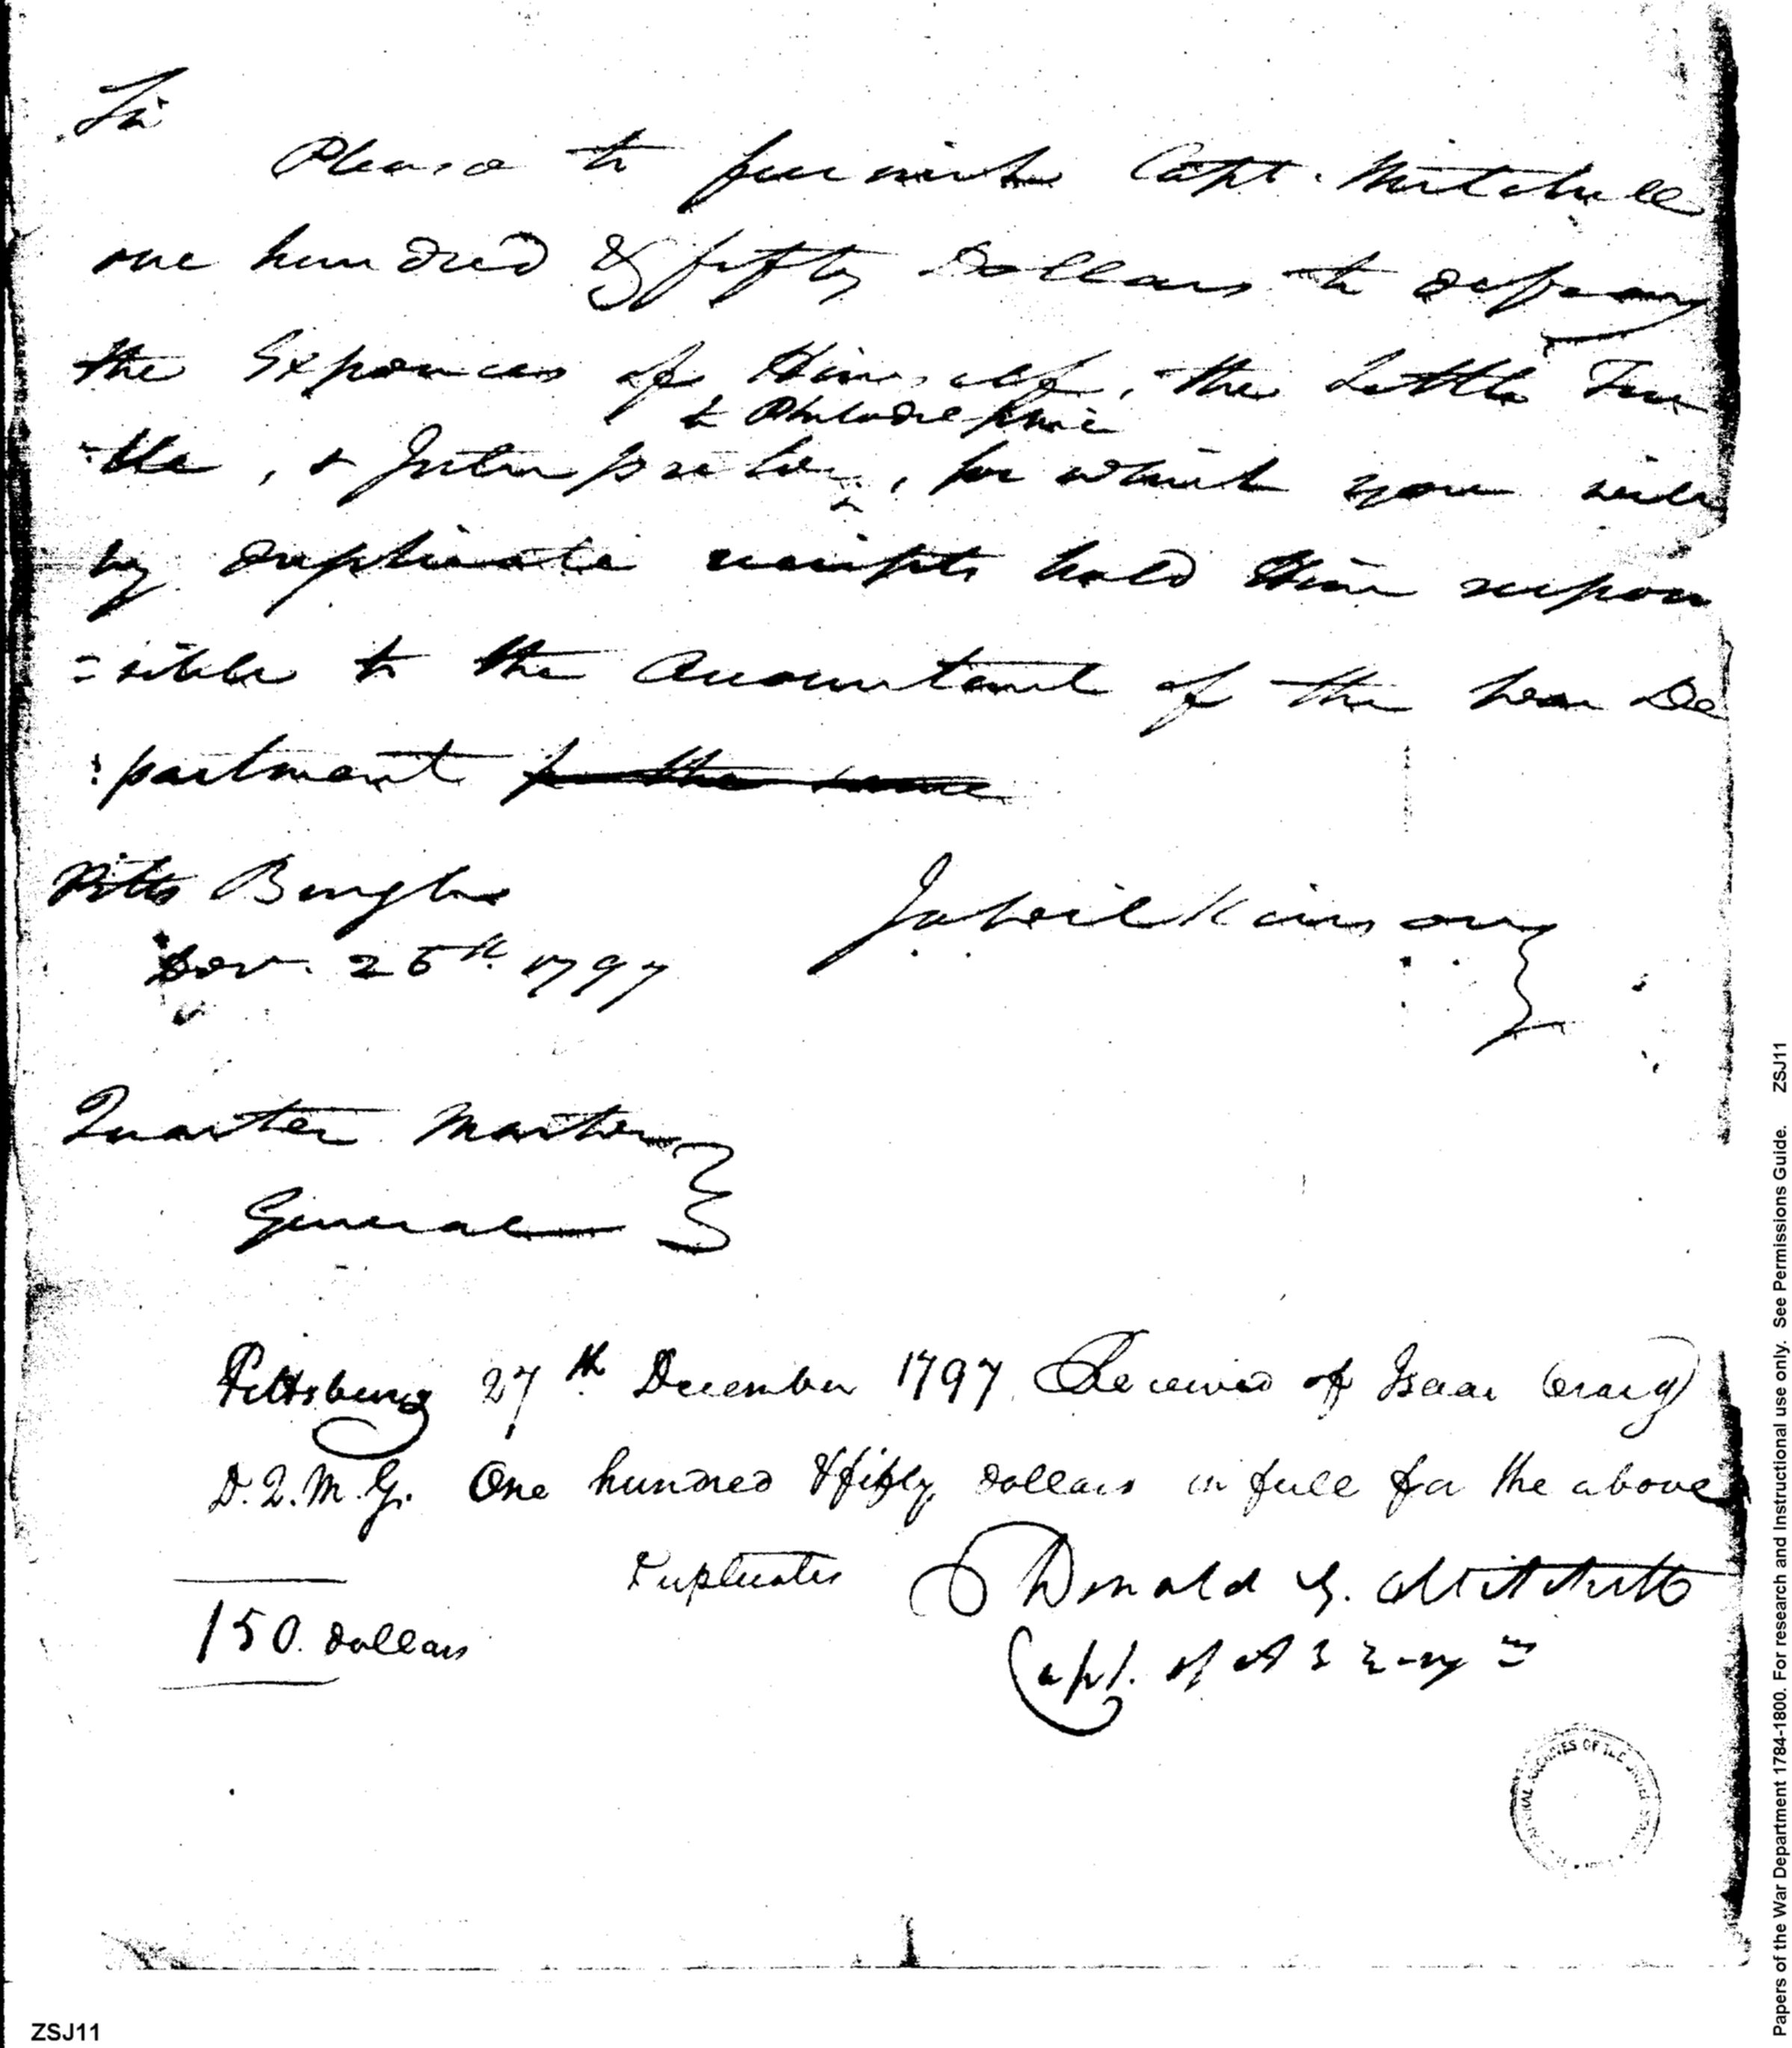 Sir
Please to furnish Capt. Mitchell
one hundred & fifty Dollars to defray
the Expences of Himself, the Little Tur
to Philadelphia
=tle, & Interpreter, for which you will
by duplicate receipts hold Him respon
=sible to the Accountant of the War De
:partment for the same
Pitts Burgh
Ja Wilkinson
25th. 1797
Quarter Master
General
Pittsburg 27th December 1797 Received of Isaac Craig
D.Q.M.G. One hundred & fifty dollars in full for the above
Duplicates Donald G. Mitchell
150. dollars
Capt. of
NATIONAL ARCHIVES OF THE UNITED STATES
ZSJ11
Papers of the War Department 1784-1800. For research and Instructional use only. See Permissions Guide. ZSJ11